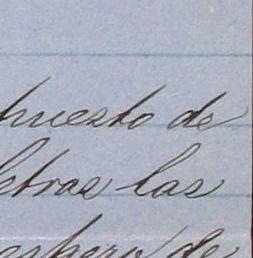 puesto de
letras las
espero de